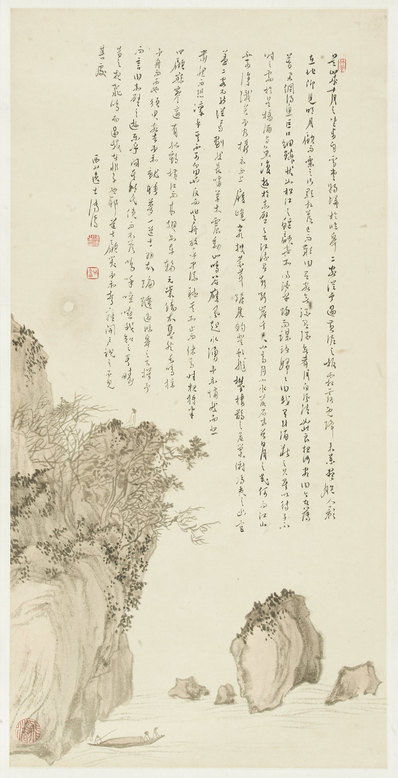 是歲十月之望步自雪堂將歸於臨皋二客從予過黃泥之坂霜露既降木葉盡脫人影
在地仰見明月顧而樂之行歌相答已而歎曰有客無酒有酒無肴月白風清如此良夜何客曰今者薄
暮舉網得魚巨口細鱗狀似松江之鱸顧安所得酒乎歸而謀諸婦婦曰我有斗酒藏之久矣以待子不
時之需於是攜酒與魚復遊於赤壁之下江流有聲斷岸千尺山高月小水落石出曾日月之幾何而江山
不可復識矣予乃攝衣而上履巉巖披蒙茸踞虎豹登虬龍攀棲鶻之危巢俯馮夷之幽宮
蓋二客不能從焉劃然長嘯草木震動山鳴谷應風起水涌予亦悄然而悲
肅然而恐凜乎其不可留也反而登舟放乎中流聽其所止而休焉時夜將半
四顧寂寥適有孤鶴橫江東來翅如車輪玄裳縞衣戛然長鳴掠
予舟而西也須臾客去予亦就睡夢一道士羽衣翩躚過臨皋之下揖予
而言曰赤壁之遊樂乎問其姓名俛而不答嗚呼噫嘻我知之矣疇
昔之夜飛鳴而過我者非子也耶道士顧笑予亦驚寤開戶視之不見
其處
西山逸士溥儒